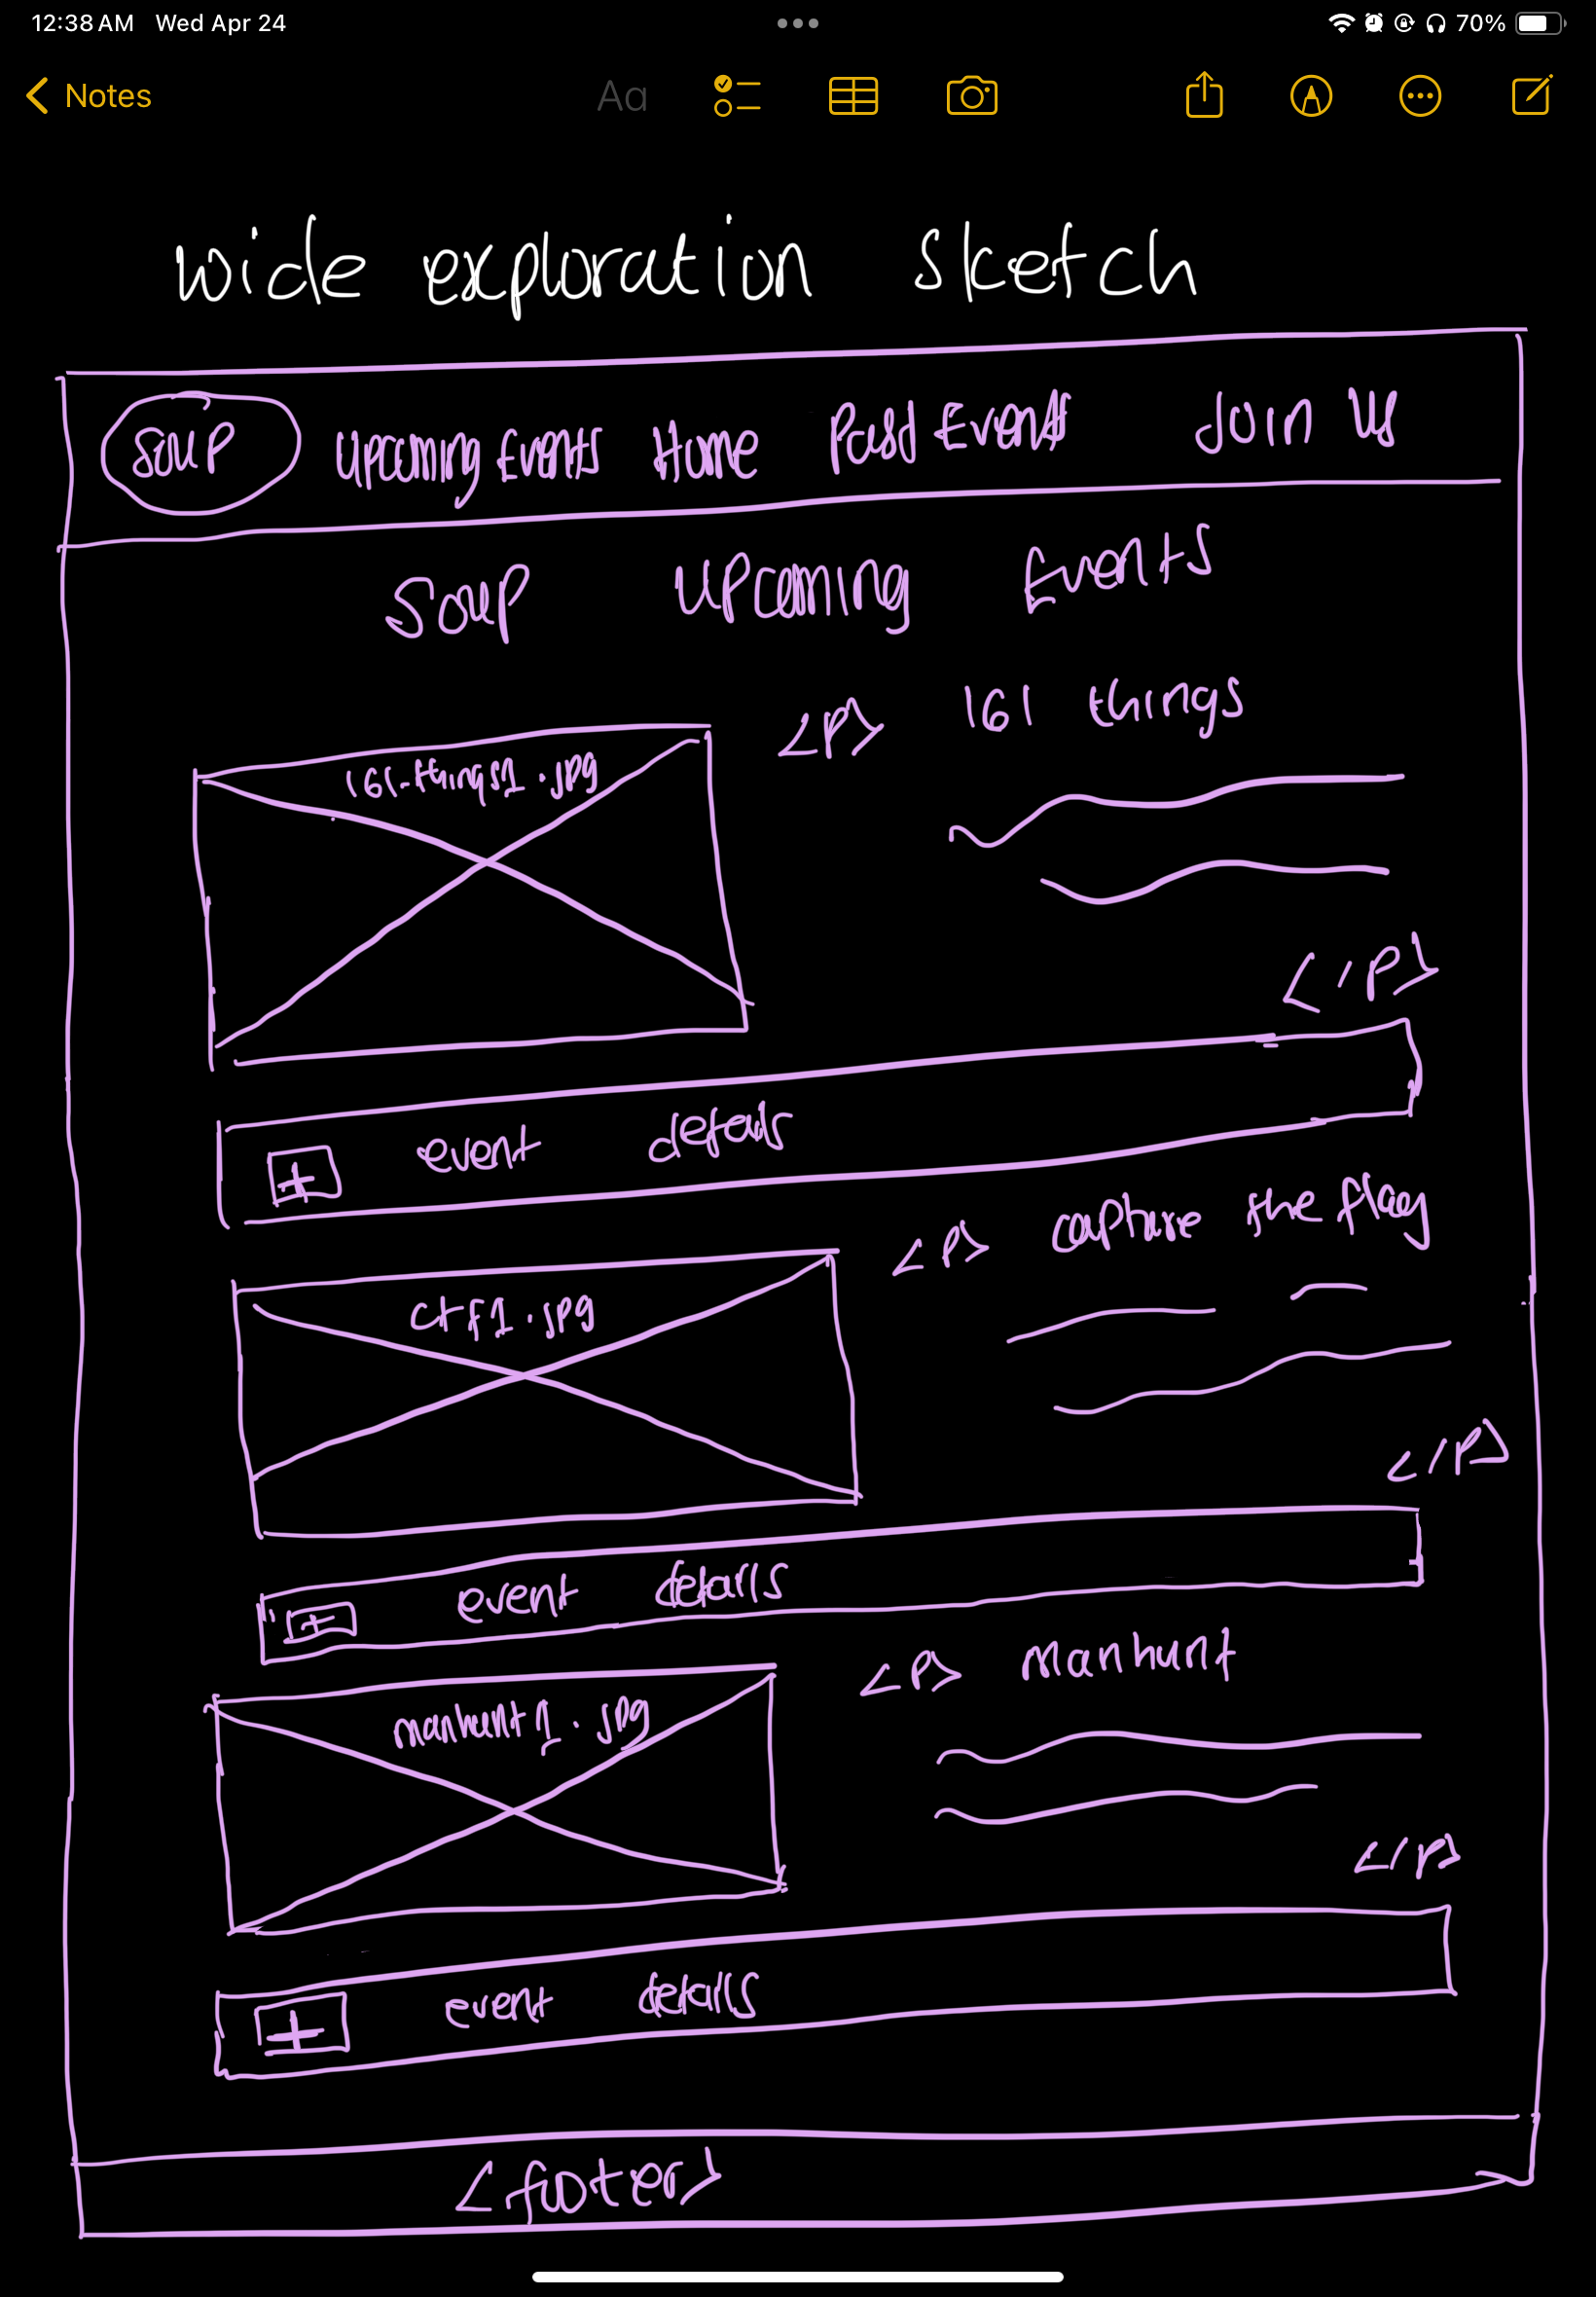 12:38 AM Wed Apr 24
70%
Notes
Aa
wide exploration sketch
SOUP Upcoming Events Home Past Events Join Us
Soup Upcoming Events
<P> 161 things
161-things1.jpg
</P>
+ event details
<P> capture the flag
ctf1.jpg
</P>
+ event details
<P> manhunt
manhunt1.jpg
</P>
+ event details
<footer>